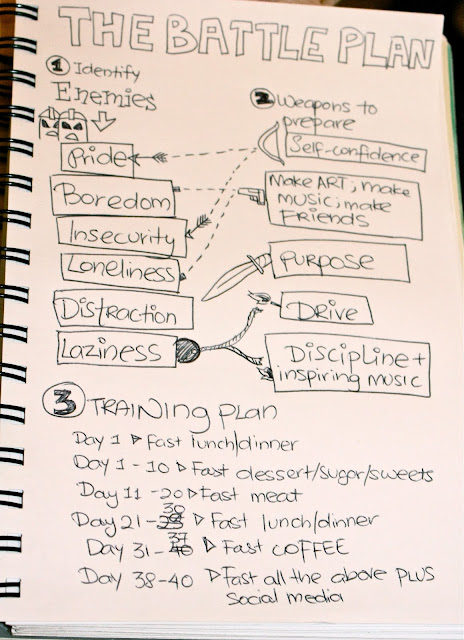 THE BATTLE PLAN
1 Identify
Enemies
Pride
Boredom
Insecurity
Loneliness
Distraction
Laziness
2 Weapons to
prepare
Self-confidence
Make ART; make
music; make
Friends
PURPOSE
DRIVE
Discipline +
inspiring music
3 TRAINING PLAN
Day 1 ▷ Fast lunch/dinner
Day 1 - 10 ▷ Fast dessert/sugar/sweets
Day 11 - 20 ▷ Fast meat
Day 21 - 30 ▷ Fast lunch/dinner
Day 31 - 37 ▷ Fast COFFEE
Day 38 - 40 ▷ Fast all the above PLUS
social media